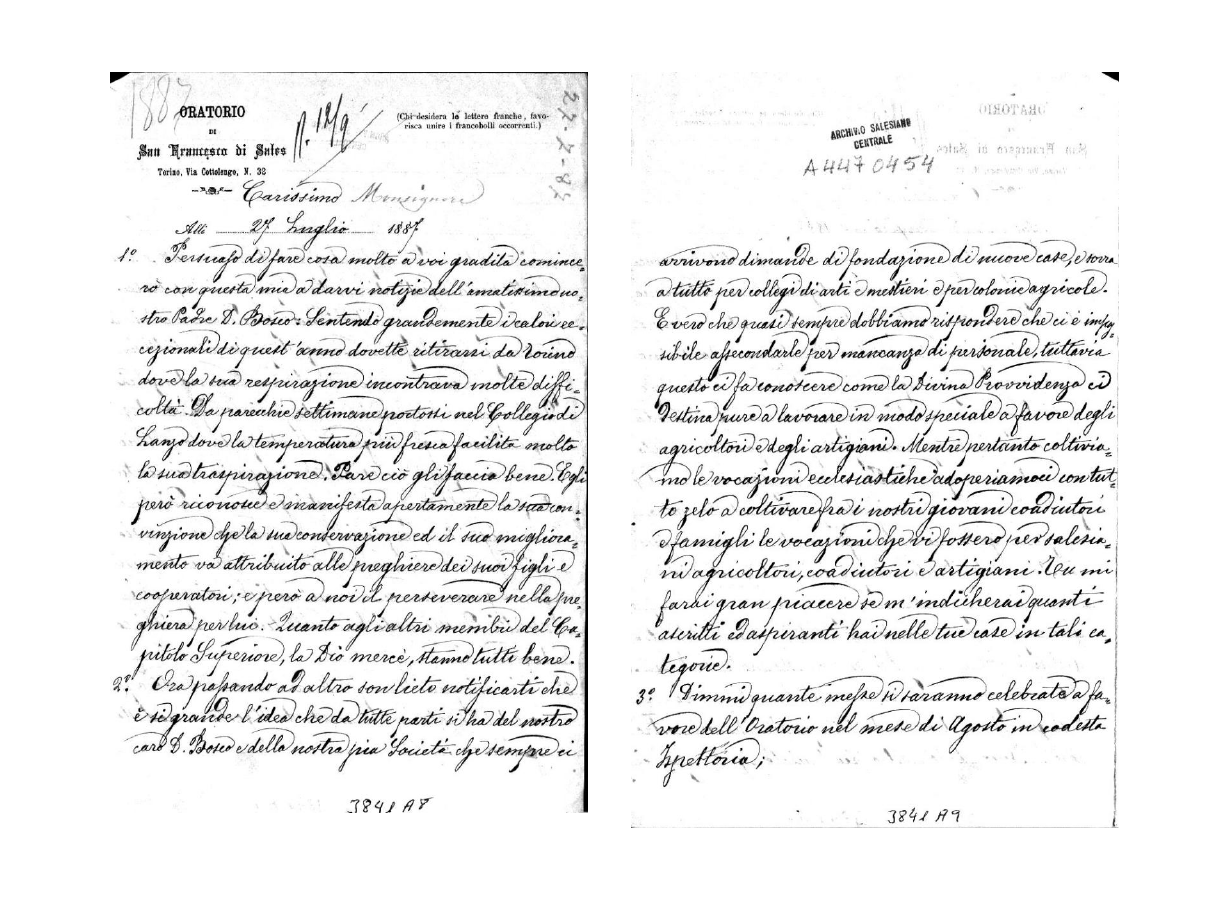 1887
ORATORIO
DI
San Francesco di Sales
Torino, Via Cottolengo, N. 32
N. 12/9
(Chi desidera le lettere franche, favo-
risca unire i francobolli occorrenti.)
27-7-87
Carissimo Monsignore
Alli 27 Luglio 1887
1° Persuaso di fare cosa molto a voi gradita comince-
rò con questa mia a darvi notizie dell'amatissimo no-
stro Padre D. Bosco. Sentendo grandemente i calori ec-
cezionali di quest'anno dovette ritirarsi da Torino
dove la sua respirazione incontrava molte diffi-
coltà. Da parecchie settimane portossi nel Collegio di
Lanzo dove la temperatura più fresca facilita molto
la sua traspirazione. Pare ciò gli faccia bene. Egli
però riconosce e manifesta apertamente la sua con-
vinzione che la sua conservazione ed il suo migliora-
mento va attribuito alle preghiere dei suoi figli e
cooperatori; e però a noi il perseverare nella pre-
ghiera per lui. Quanto agli altri membri del Ca-
pitolo Superiore, la Dio mercè, stanno tutti bene.
2° Ora passando ad altro son lieto notificarti che
è sì grande l'idea che da tutte parti si ha del nostro
caro D. Bosco e della nostra pia Società che sempre ci
3841 A8
ARCHIVIO SALESIANO
CENTRALE
A4470454
arrivono dimande di fondazione di nuove case, e sovra
a tutto per collegi di arti e mestieri e per colonie agricole.
È vero che quasi sempre dobbiamo rispondere che ci è impos-
sibile assecondarle per mancanza di personale, tuttavia
questo ci fa conoscere come la Divina Provvidenza ci
destina pure a lavorare in modo speciale a favore degli
agricoltori e degli artigiani. Mentre pertanto coltivia-
mo le vocazioni ecclesiastiche adoperiamoci con tut-
to zelo a coltivare fra i nostri giovani coadiutori
e famigli le vocazioni che vi fossero per salesia-
ni agricoltori, coadiutori e artigiani. Tu mi
farai gran piacere se m'indicherai quanti
ascritti ed aspiranti hai nelle tue case in tali ca-
tegorie.
3° Dimmi quante messe si saranno celebrate a fa-
vore dell'Oratorio nel mese di Agosto in codesta
Ispettoria;
3841 A9